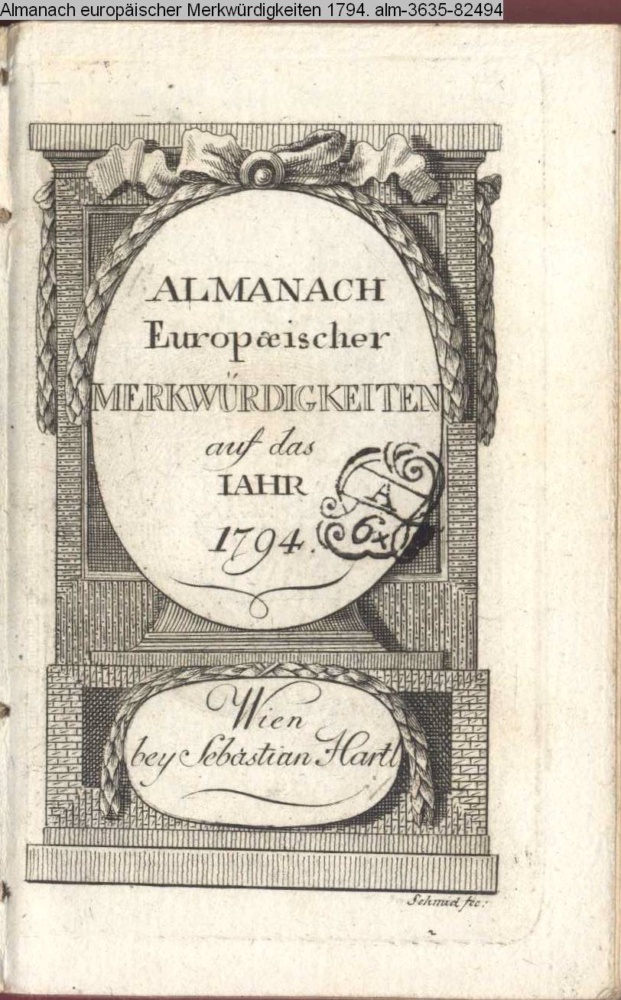 Almanach europäischer Merkwürdigkeiten 1794. alm-3635-82494
ALMANACH
Europæischer
MERKWÜRDIGKEITEN
auf das
IAHR
1794.
A
6x
Wien
bey Sebastian Hartl
Schmid fec: